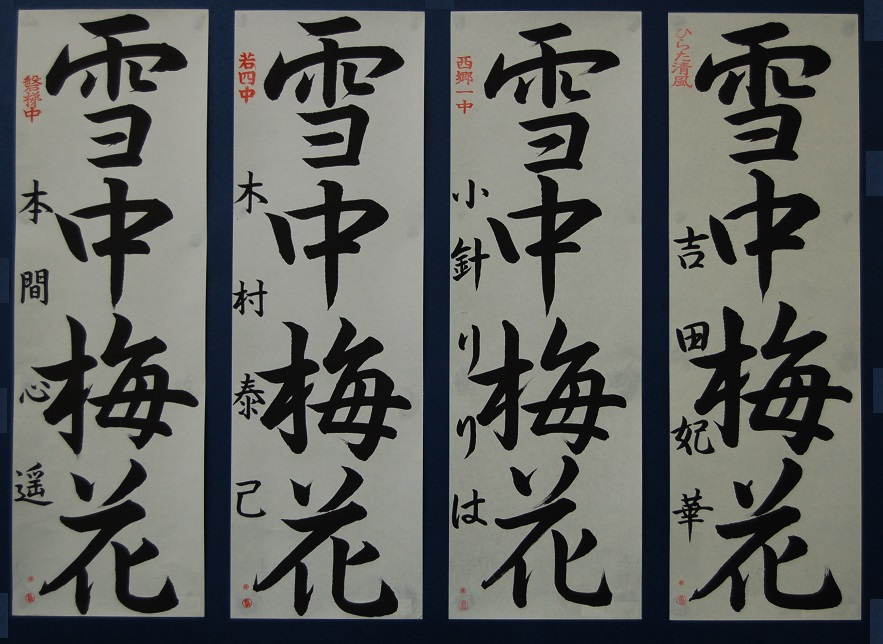 ひらた清風
雪中梅花
吉田妃華
西郷一中
雪中梅花
小針りりは
若四中
雪中梅花
木村泰己
磐梯中
雪中梅花
本間心遥